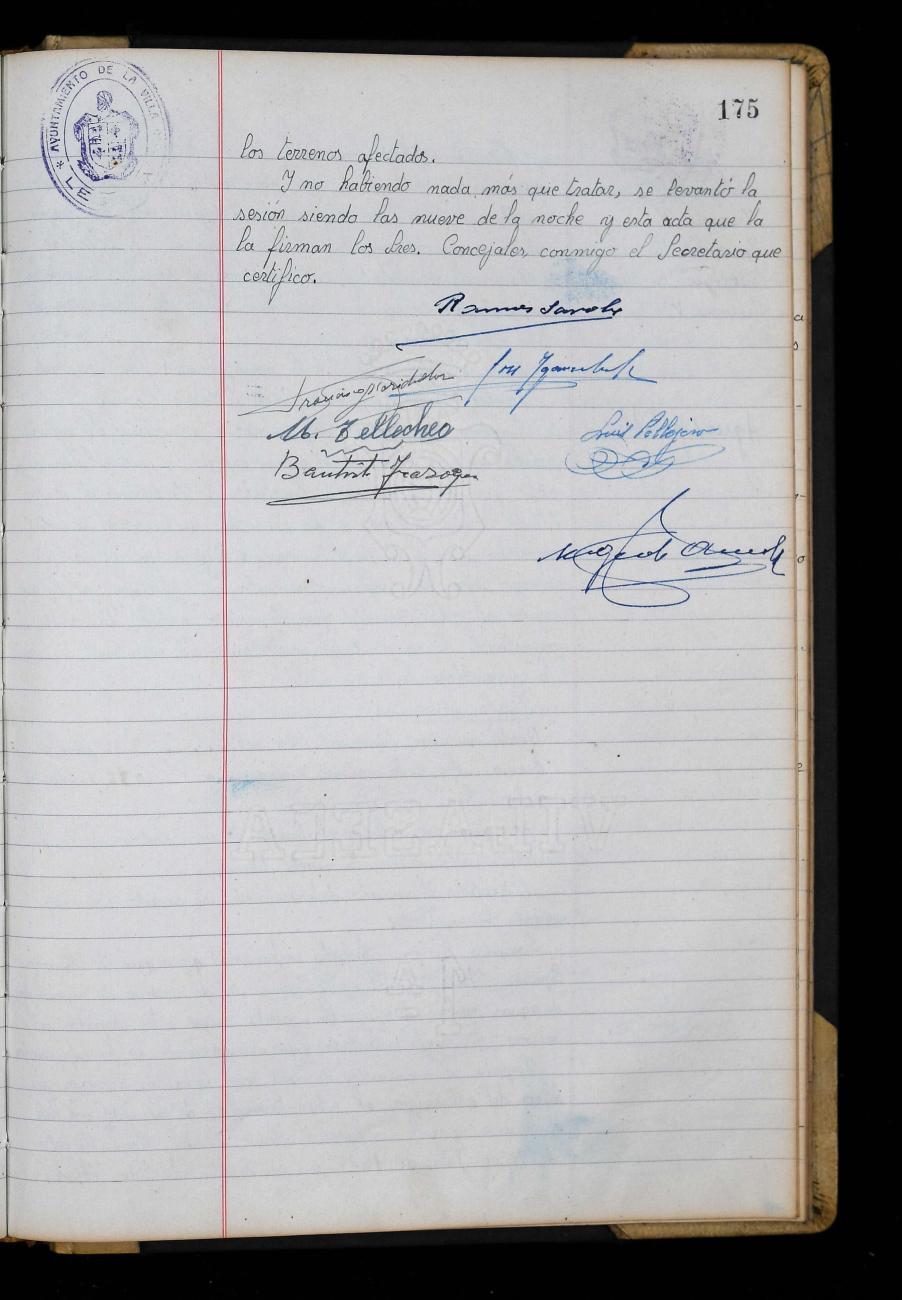 175
* AYUNTAMIENTO DE LA VILLA
LE
los terrenos afectados.
Y no habiendo nada más que tratar, se levantó la
sesión siendo las nueve de la noche y esta acta que la
la firman los Sres. Concejales, conmigo el Secretario que
certifico.
M. Tellechea
Luis Pellejero
Bautist